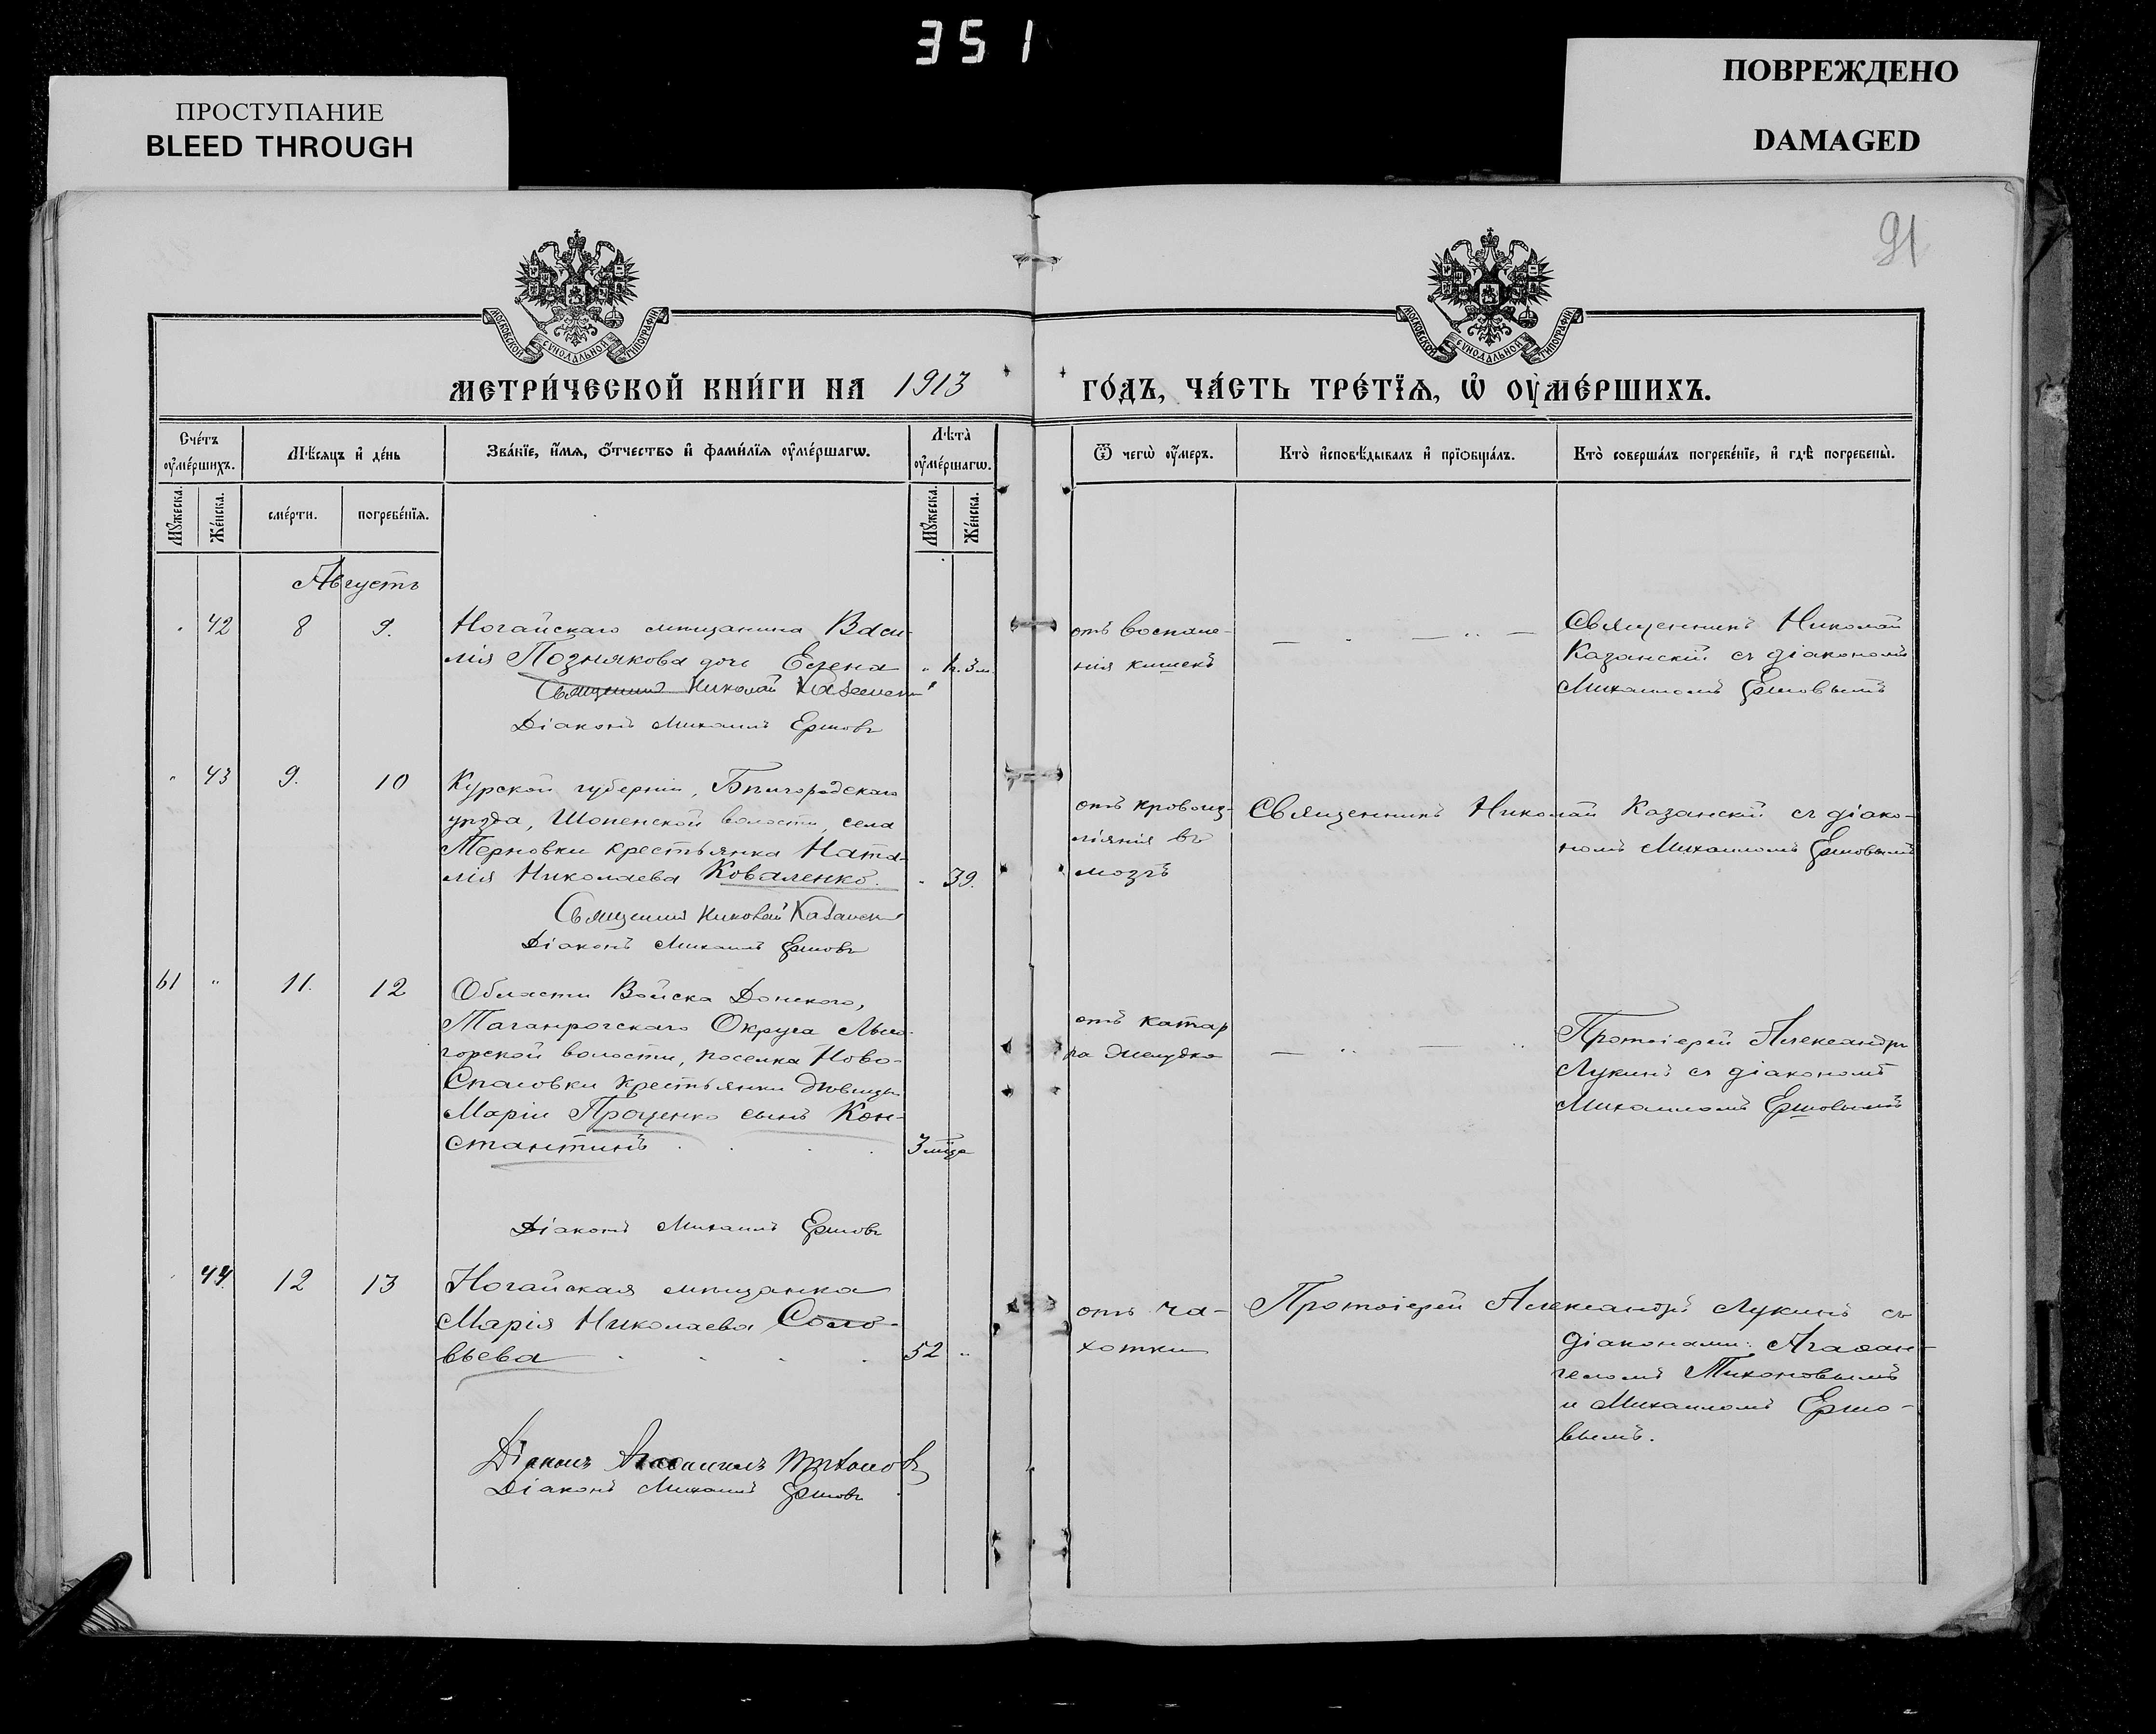 351
ПРОСТУПАНИЕ
BLEED THROUGH
ПОВРЕЖДЕНО
DAMAGED
91
МОСКОВСКОЙ СѴНОДАЛЬНОЙ ТИПОГРАФІИ
МОСКОВСКОЙ СѴНОДАЛЬНОЙ ТИПОГРАФІИ
МЕТРИ́ЧЕСКОЙ КНИ́ГИ НА 1913 ГО́ДЪ, ЧА́СТЬ ТРЕ́ТЇѦ, Ѡ҆ ОУ҆МЕ́РШИХЪ.
Сче́тъ оу҆ме́ршихъ.
Мѣ́сѧцъ и҆ де́нь
Зва́нїе, и҆́мѧ, ѻ҆́тчество и҆ фами́лїѧ оу҆ме́ршагѡ.
Лѣта̀ оу҆ме́ршагѡ.
Ѿ чегѡ̀ оу҆́меръ.
Кто̀ и҆сповѣ́дывалъ и҆ прїѻбща́лъ.
Кто̀ соверша́лъ погребе́нїе, и҆ гдѣ̀ погребены̀.
Мꙋ́жеска.
Же́нска.
сме́рти.
погребе́нїѧ.
Мꙋ́жеска.
Же́нска.
Августъ
42 8 9. Ногайскаго мѣщанина Васи-
лія Познякова дочь Елена
Священникъ Николай Казанскій
Діаконъ Михаилъ Ершовъ
отъ воспале-
нія кишекъ
Священникъ Николай
Казанскій съ діакономъ
Михаиломъ Ершовымъ
43 9. 10 Курской губерніи, Бѣлгородскаго
уѣзда, Шопенской волости, села
Терновки крестьянка Ната-
лія Николаева Коваленко. 39.
Священникъ Николай Казанскій
Діаконъ Михаилъ Ершовъ
отъ кровоиз-
ліянія въ
мозгъ
Священникъ Николай Казанскій съ діако-
номъ Михаиломъ Ершовымъ
61 " 11. 12 Области Войска Донского,
Таганрогскаго Округа
горской волости, поселка Ново-
Спасовки крестьянки дѣвицы
Маріи Проценко сынъ Кон-
стантинъ 3 мца
Діаконъ Михаилъ Ершовъ
отъ катар
ра желудка
Протоіерей Александръ
Лукинъ съ діакономъ
Михаиломъ Ершовымъ
44. 12 13 Ногайская мѣщанка
Марія Николаева Соло-
вьева 52 "
Діаконъ Агаѳангелъ Тихоновъ
Діаконъ Михаилъ Ершовъ
отъ ча-
хотки
Протоіерей Александръ Лукинъ съ
діаконами: Агаѳан-
геломъ Тихоновымъ
и Михаиломъ Ершо-
вымъ.